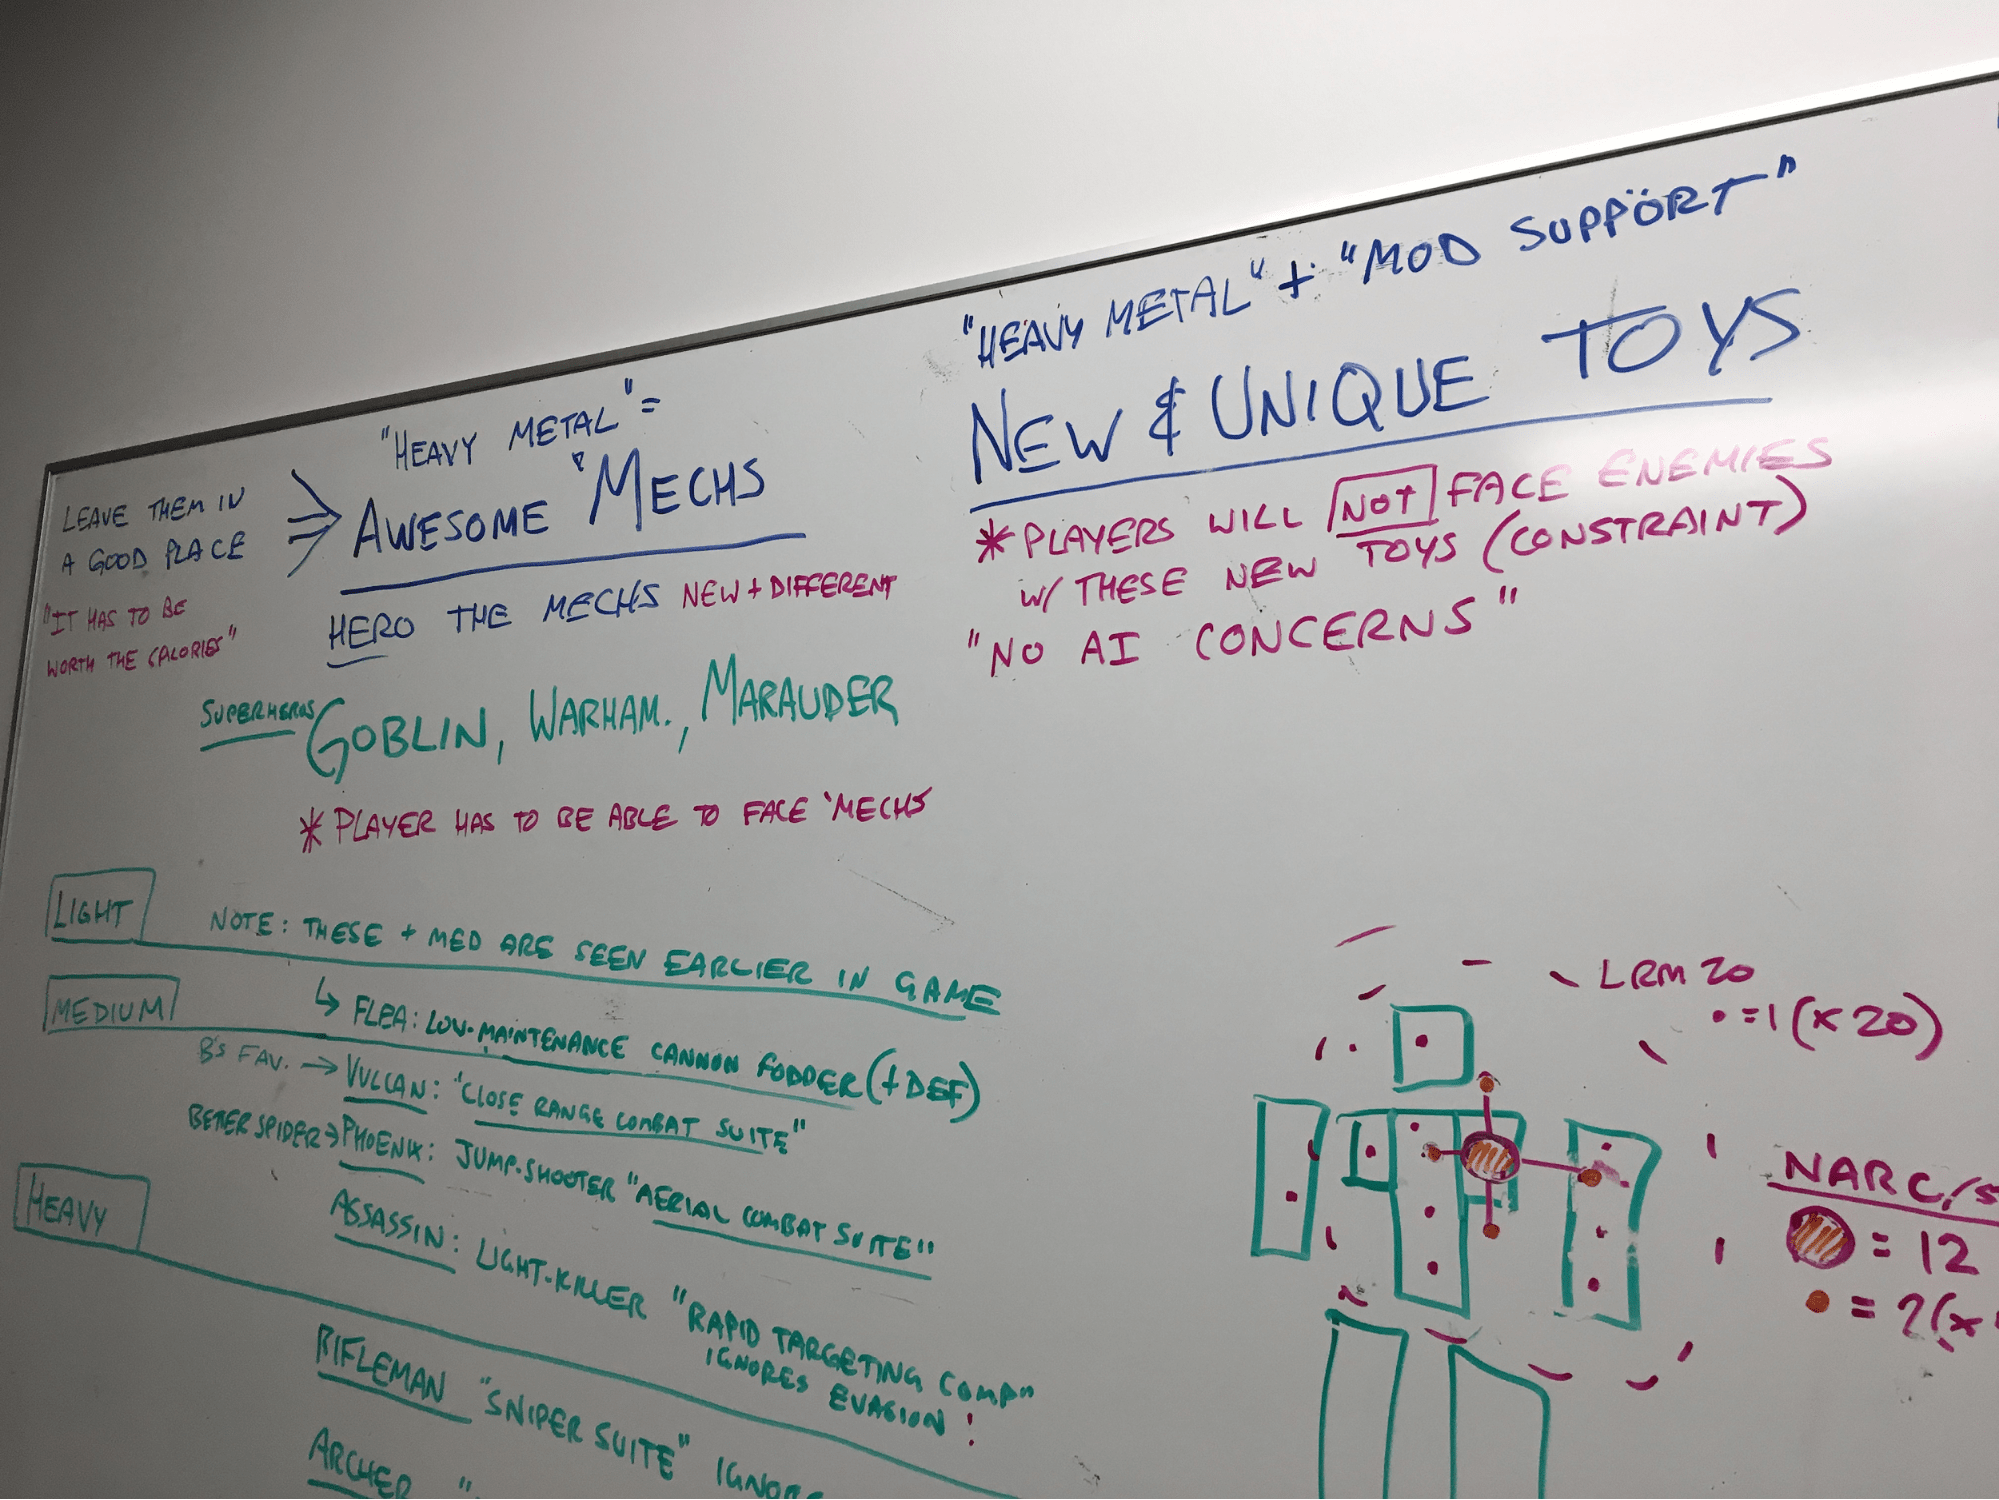 "HEAVY METAL" =
LEAVE THEM IN
A GOOD PLACE
AWESOME 'MECHS
"IT HAS TO BE
WORTH THE CALORIES"
HERO THE MECHS NEW + DIFFERENT
SUPERHEROS GOBLIN, WARHAM., MARAUDER
* PLAYER HAS TO BE ABLE TO FACE 'MECHS
LIGHT
NOTE: THESE + MED ARE SEEN EARLIER IN GAME
↳ FLEA: LOW-MAINTENANCE CANNON FODDER (+DEF)
MEDIUM
B'S FAV. → VULCAN: "CLOSE RANGE COMBAT SUITE"
BETTER SPIDER → PHOENIX: JUMP-SHOOTER "AERIAL COMBAT SUITE"
ASSASSIN: LIGHT-KILLER "RAPID TARGETING COMP"
IGNORES EVASION!
HEAVY
RIFLEMAN "SNIPER SUITE" IGNOR
ARCHER "
"HEAVY METAL" + "MOD SUPPÖRT"
NEW & UNIQUE TOYS
* PLAYERS WILL NOT FACE ENEMIES
W/ THESE NEW TOYS (CONSTRAINT)
"NO AI CONCERNS"
LRM 20
• = 1 (x 20)
NARC/
= 12
= 2(x